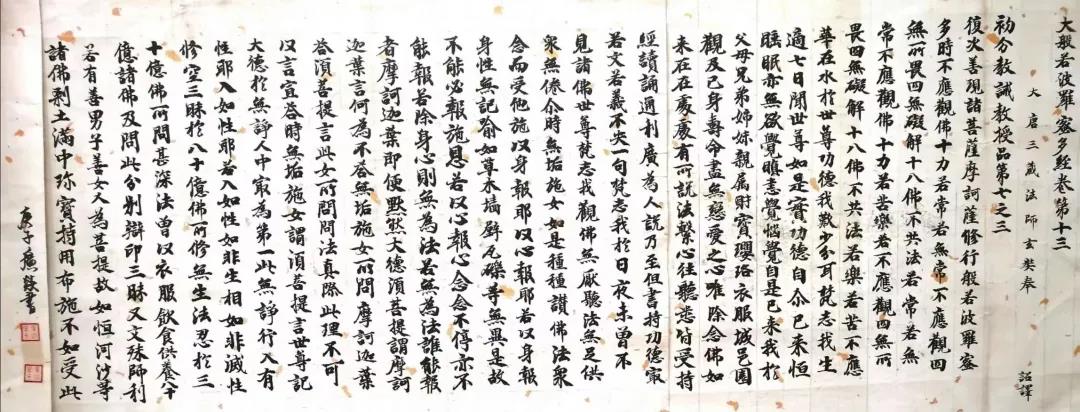 大般若波羅蜜多經卷第十三
大唐三藏法師玄奘奉 詔譯
初分教誡教授品第七之三
復次善現諸菩薩摩訶薩修行般若波羅蜜
多時不應觀佛十力若常若無常不應觀四
無所畏四無礙解十八佛不共法若常若無
常不應觀佛十力若樂若苦不應觀四無所
畏四無礙解十八佛不共法若樂若苦不應
華在水於世尊功德我歎少分耳梵志我生
適七日聞世尊如是實功德自尒已来恒
睡眠亦無欲覺瞋恚覺惱覺自是已来我於
父母兄弟姊妹親属財寶瓔珞衣服城邑園
觀及己身壽命盡無戀愛之心唯除念佛如
来在在處處有所說法繫心往聽悉皆受持
經讀誦通利廣為人說乃至但書持功德寂
若文若義不失一句梵志我於日夜未曾不
見諸佛世尊梵志我觀佛無厭聽法無足供
衆無倦尒時無垢施女如是種種讃佛法衆
念而受他施以身報耶以心報耶若以身報
身性無記喻如草木墻壁瓦礫等無異是故
不能必報施恩若以心報心念念不停亦不
能報若除身心則無為法若無為法誰能報
者摩訶迦葉即便默然大德湏菩提謂摩訶
迦葉言何為不答無垢施女所問摩訶迦葉
答湏菩提言此女所問問法真際此理不可
以言宣答時無垢施女謂湏菩提言世尊記
大德於無諍人中寂為第一此無諍行入有
性耶入如性耶若入如性如非生相如非滅性
修空三昧於八十億佛所修無生法忍於三
十億佛所問甚深法曾以衣服飲食供養八十
億諸佛及問此分别辯印三昧又文殊師利
若有善男子善女人為菩提故如恒河沙等
諸佛剎土滿中珎寶持用布施不如受此
庚子書